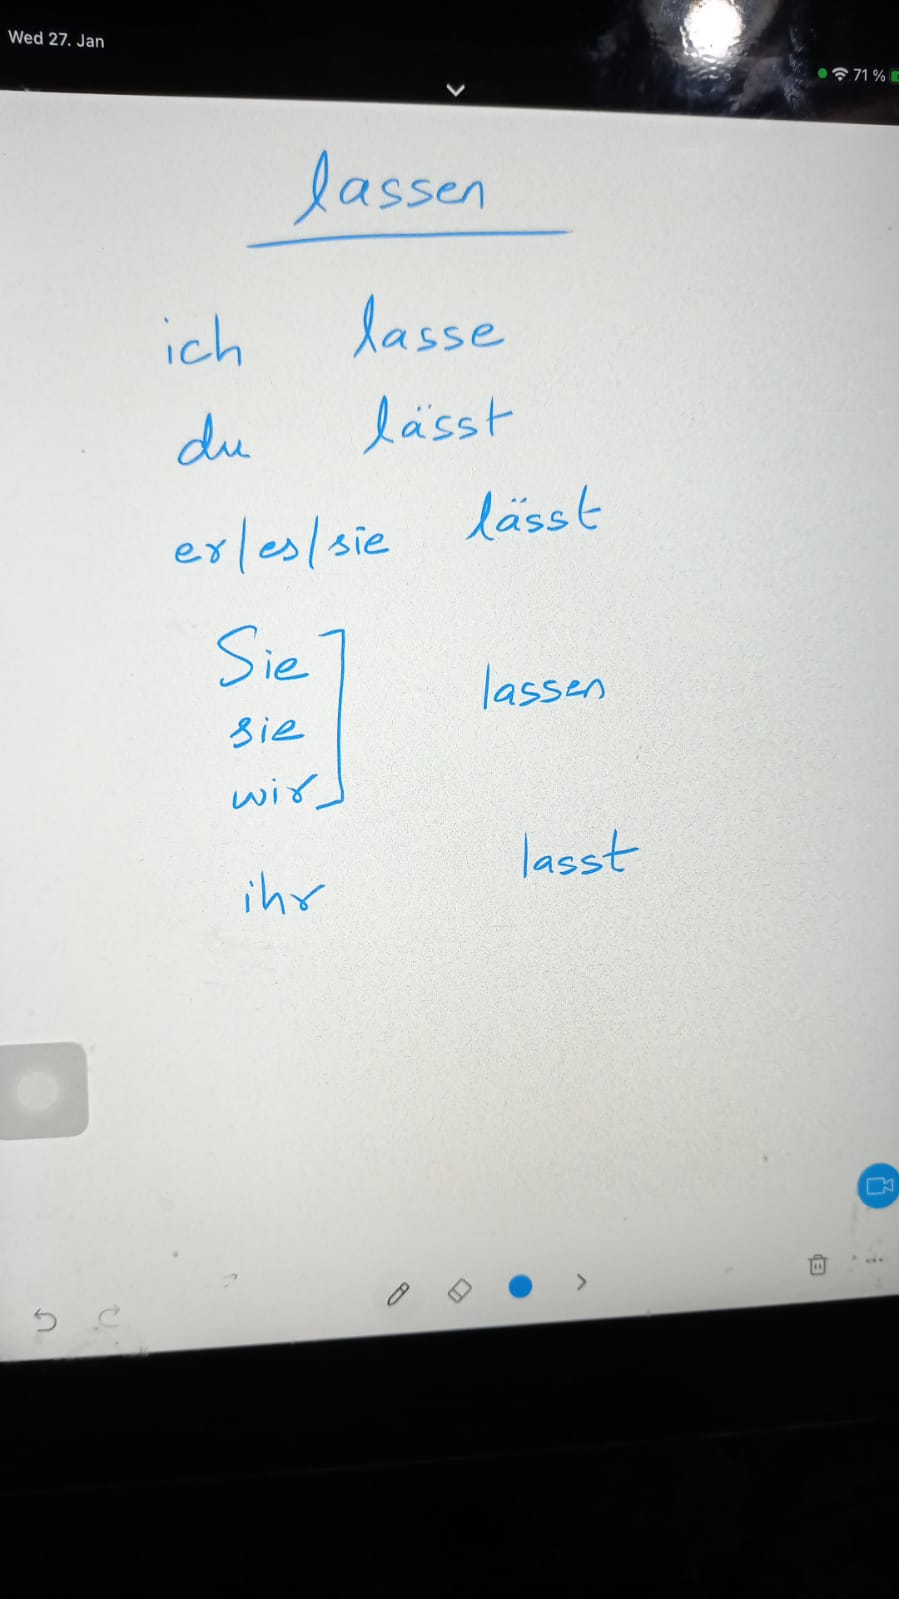 Wed 27. Jan
71 %
lassen
ich lasse
du lässt
er/es/sie lässt
Sie
sie lassen
wir
ihr lasst